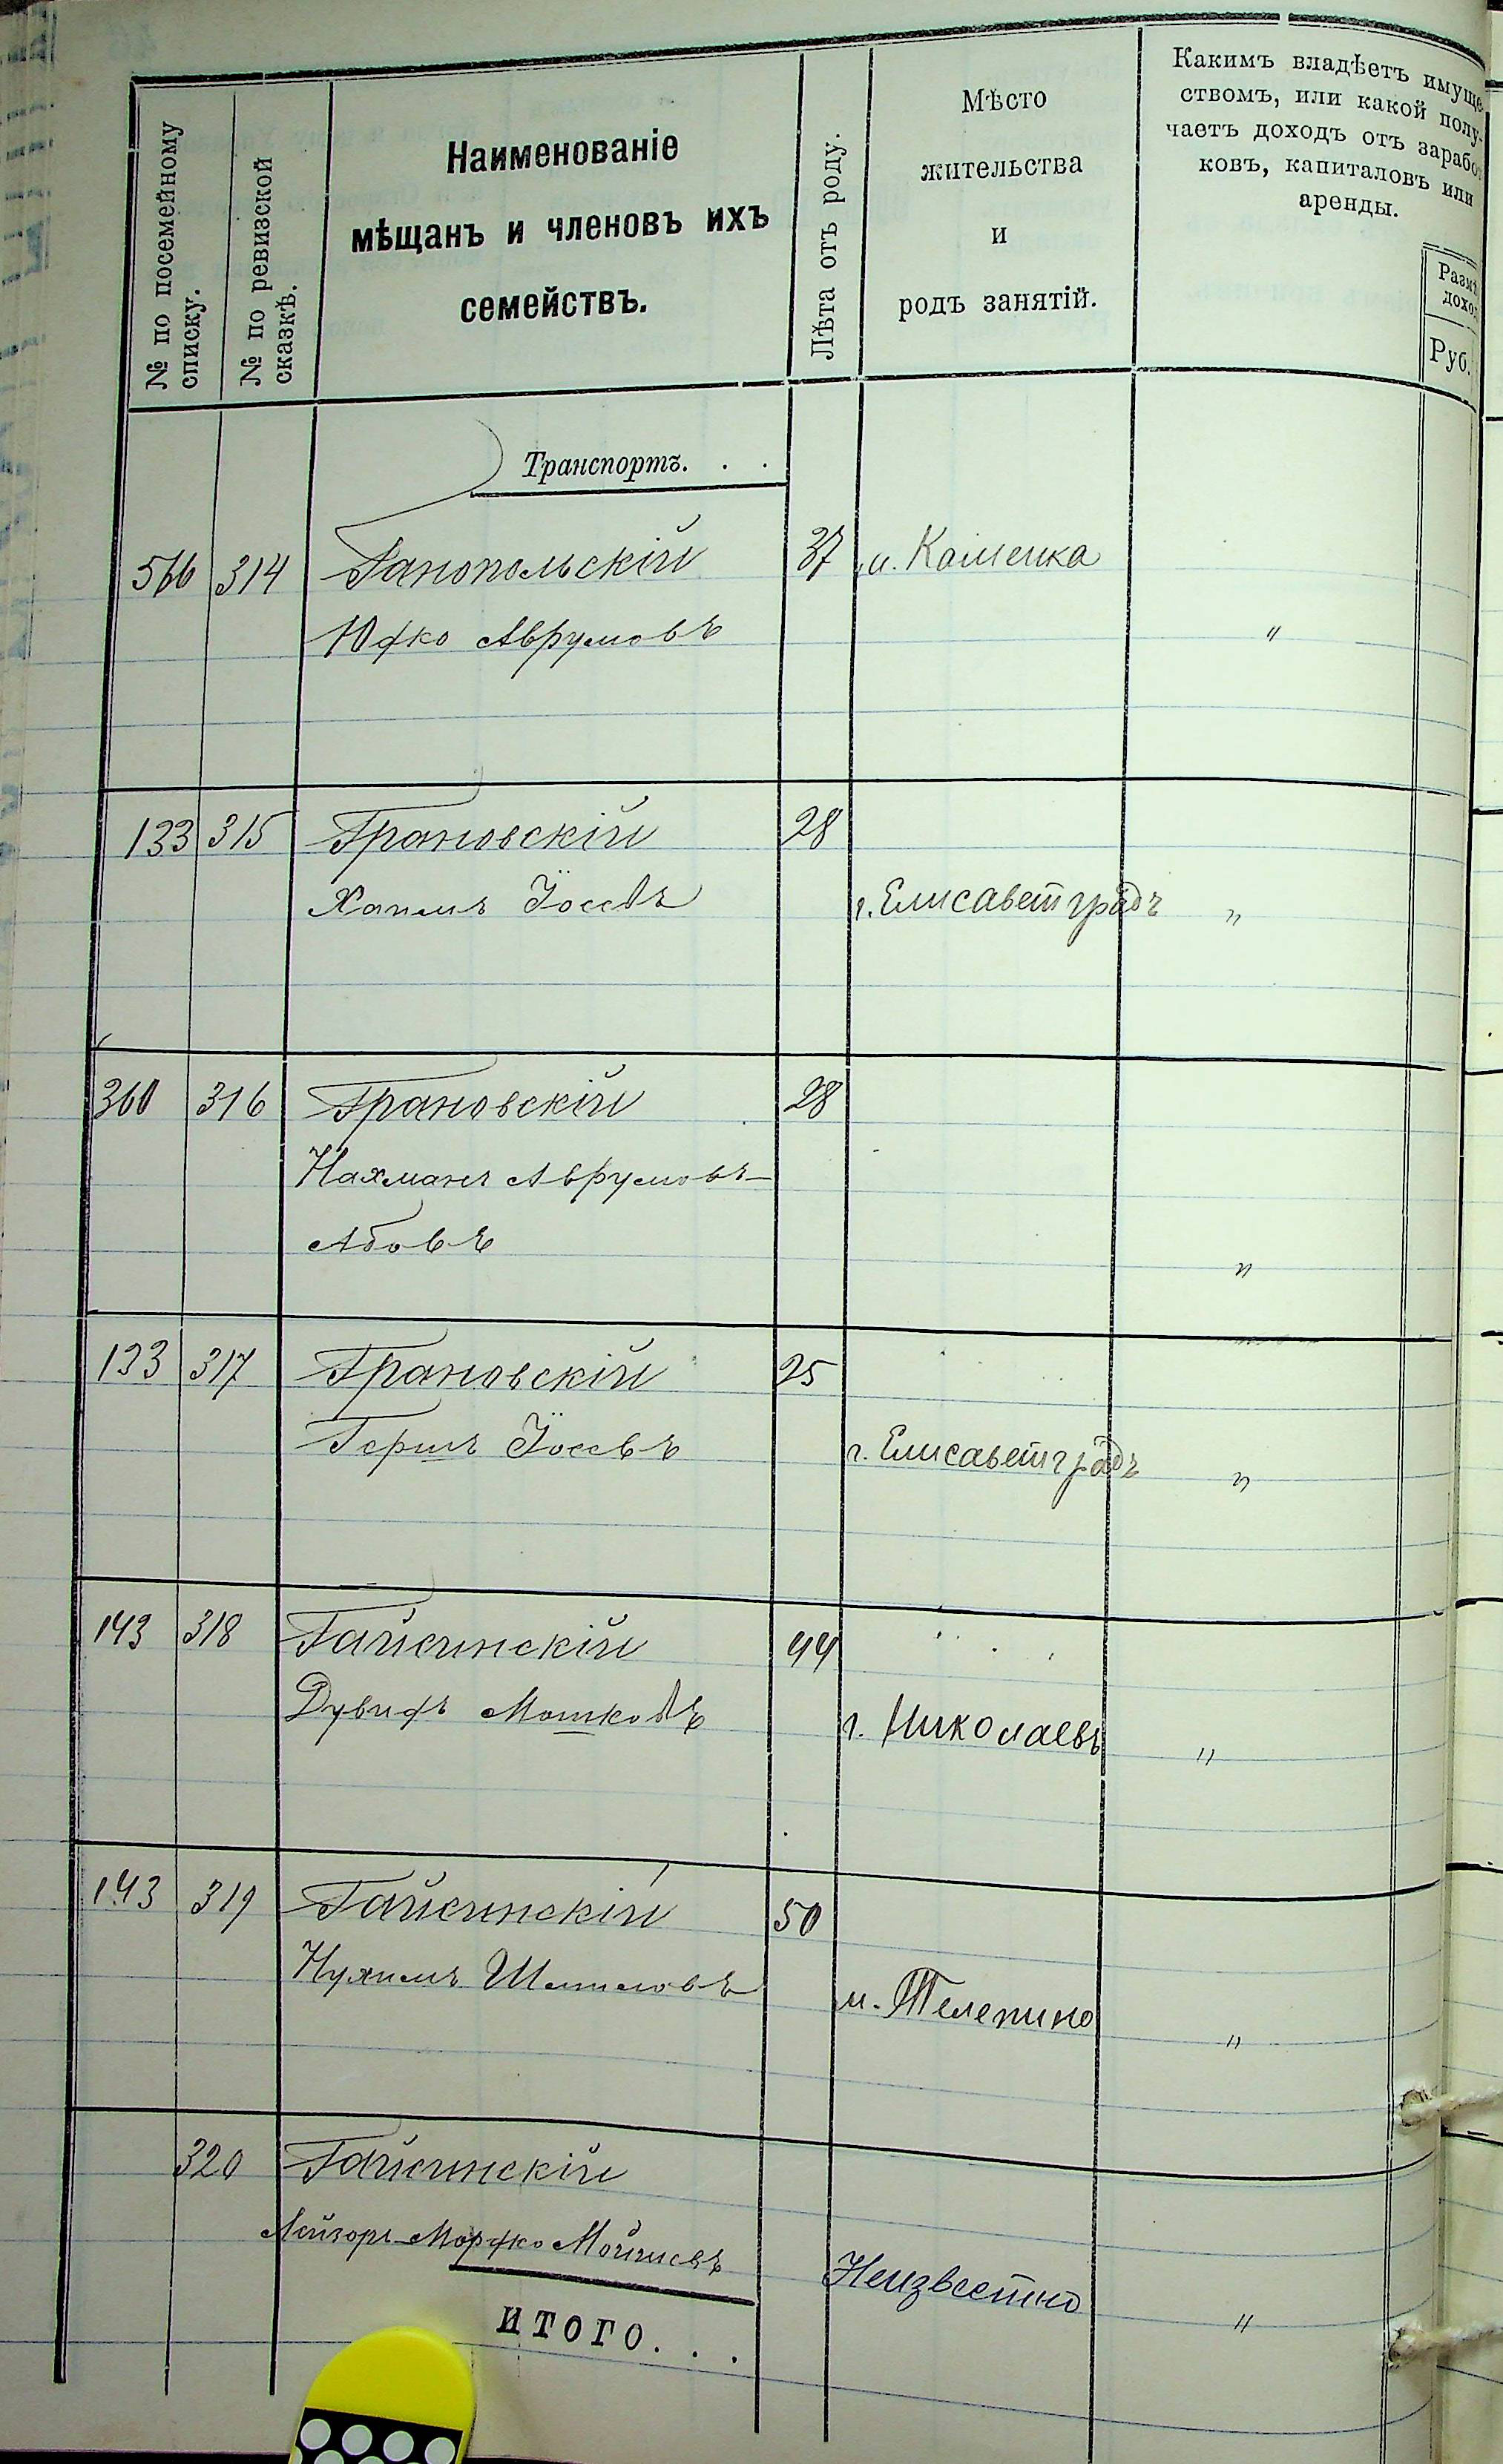 № по посемейному
списку.
№ по ревизской
сказкѣ.
Наименованіе
мѣщанъ и членовъ ихъ
семействъ.
Лѣта отъ роду.
Мѣсто
жительства
и
родъ занятій.
Какимъ владѣетъ имуще-
ствомъ, или какой полу-
чаетъ доходъ отъ заработ
ковъ, капиталовъ или
аренды.
Размѣ
доход
Руб.
Транспортъ. . .
566 314 Ганопольскій 37 м. Каменка
Юфко Аврумовъ "
133 315 Грановскій 28
Хаимъ Іосевъ г. Елисаветградъ "
360 316 Грановскій 28
Нахманъ Аврумовъ-
Абовъ "
133 317 Грановскій 25
Гершъ Іосевъ г. Елисаветградъ "
143 318 Гайсинскій 44
Дувидъ Мошковъ г. Николаевъ "
143 319 Гайсинскій 50
Нухимъ Шмиловъ м. Телепино "
320 Гайсинскій
Лейзоръ-Мордко Неизвестно "
ИТОГО. . .